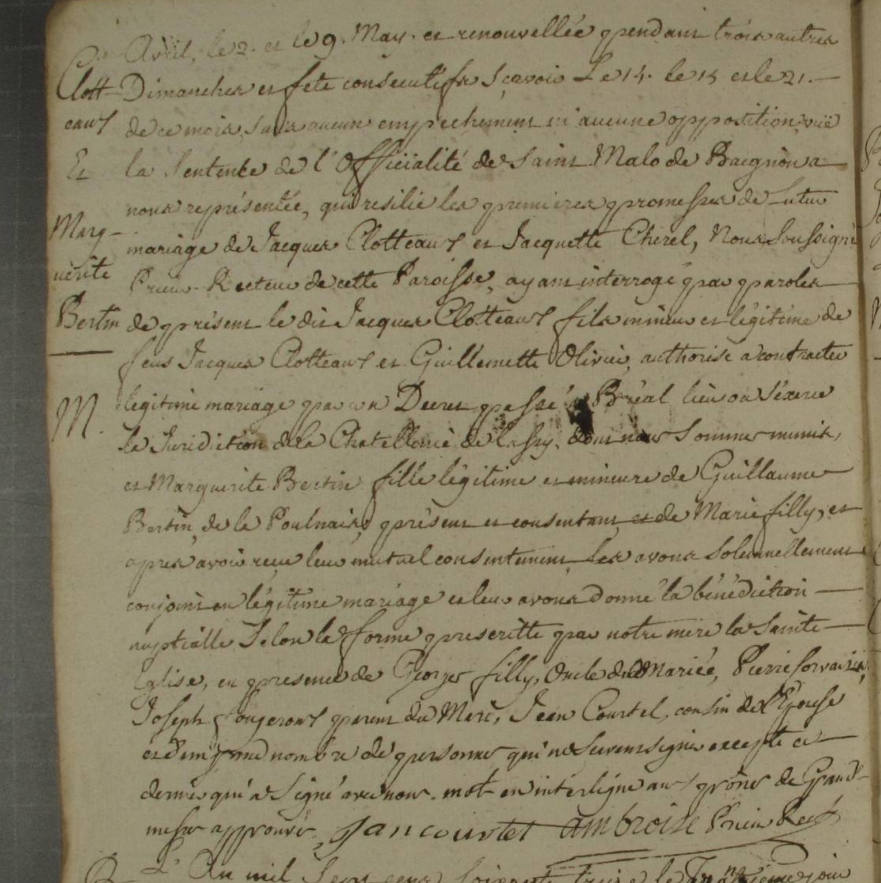 Avril, le 2. et le 9. May. et renouvellée pendant trois autres
Clott- Dimanches et fête consecutifs sçavoir Le 14. le 15 et le 21. —
eaux de ce mois, sans aucun empechement ni aucune opposition, vuë
Et la sentence de l'officialité de Saint Malo de Baignon a
nous représentée, qui resilie les premieres promesses de futur
Marg- mariage de Jacques Clotteaux et Jacquette Cherel, Nous Soussigné
uerite Prieur Recteur de cette Paroisse, ayant interrogé par paroles
Bertin de présent le dit Jacques Clotteaux fils mineur et légitime de
feus Jacques Clotteaux et Guillemette Olivier, authorisé a contracter
M. légitime mariage par un Decret passé a Bréal lieu ou s'éxerce
la Juridiction de la Chatellenie de dont nous Sommes munis,
et Marguerite Bertin fille légitime et mineure de Guillaume
Bertin, de la présent et consentant et de Marie filly, et
apres avoir reçu leur mutuel consentement Les avons Solennellement
conjoint en légitime mariage et leur avons donné la bénédiction —
nuptialle Selon la forme prescritte par notre mere la Sainte —
Eglise, en presence de George filly, Oncle de la Mariée, Pierre
Joseph parent du Jean Courtel, cousin de l'Epouse
et d'un grand nombre de personnes qui ne sçavent signer excepté ce —
dernier qui a Signé avec nous. mot en interligne aux prônes de Grand-
messes approuvé. Jan courtel ambroise Prieur Rect
L' An mil Sept cens Soixante treize le juin